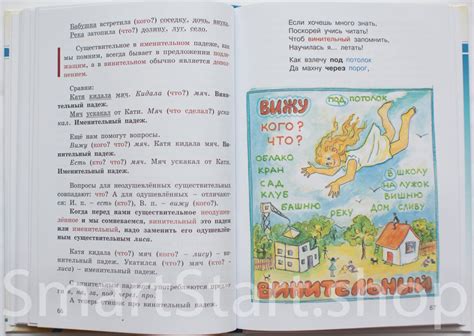 Бабушка встретила (кого?) соседку, дочь, внука.
Река затопила (что?) долину, луг, село.
Существительное в именительном падеже, как
мы помним, всегда бывает в предложении подле-
жащим, а в винительном обычно является допол-
нением.
Сравни:
Катя кидала мяч. Кидала (что?) мяч. Винитель-
ный падеж.
Мяч ускакал от Кати. Мяч (что сделал?) ускакал.
Именительный падеж.
Ещё нам помогут вопросы.
Вижу (кого?) (что?) мяч. Катя кидала мяч. Ви-
нительный падеж.
Есть (кто?) (что?) мяч. Мяч ускакал от Кати. Име-
нительный падеж.
Вопросы для неодушевлённых существительных
совпадают: что? А для одушевлённых – отличают-
ся: И. п. – есть (кто?) В. п. – вижу (кого?)
Когда перед нами существительное неодушев-
лённое и мы сомневаемся, винительный это падеж
или именительный, надо заменить его одушевлён-
ным существительным лиса.
Катя кидала (что?) мяч (кого?) – лису) – вини-
тельный падеж. Укатился (что?) мяч (кто? – лиса)
– именительный падеж.
С винительным падежом употребляются предлоги
А теперь стихотворение про винительный падеж.
66
Если хочешь много знать,
Поскорей учись читать!
Чтоб винительный запомнить,
Научилась я... летать!
Как взлечу под потолок
Да махну через порог,
ВИЖУ
ПОД ПОТОЛОК
КОГО?
ЧТО?
ОБЛАКО
КРАН
САД
КЛУБ
БАШНЮ
РЕКУ
В ШКОЛУ
НА ЛУЖОК
ВИШНЮ
ДОМ СЛИВУ
ВИНИТЕЛЬНЫЙ
67
SmartStart.shop